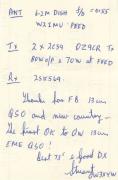 ANT 6.2M DISH f/D 0.55
W2IMU FEED
Tx 2 x 2C39 DZ9CR Tx
80W o/p = 70W at FEED
Rx 25K569.
Thanks for FB 13cm
QSO and new country —
the first OK to OW 13cm
EME QSO!
Best 73's & Good DX